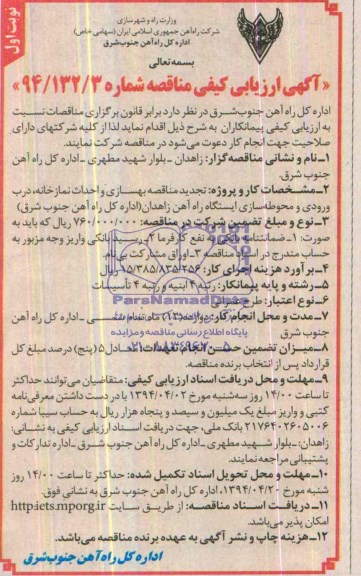 وزارت راه و شهرسازی
شرکت راه‌آهن جمهوری اسلامی ایران (سهامی خاص)
اداره کل راه‌آهن جنوب‌شرق
نوبت اول
بسمه‌تعالی
«آگهی ارزیابی کیفی مناقصه شماره ۹۴/۱۳۲/۳»
اداره کل راه آهن جنوب‌شرق در نظر دارد برابر قانون برگزاری مناقصات نسبت
به ارزیابی کیفی پیمانکاران به شرح ذیل اقدام نماید لذا از کلیه شرکتهای دارای
صلاحیت جهت انجام کار دعوت می‌شود در مناقصه شرکت نمایند.
۱-نام و نشانی مناقصه‌گزار: زاهدان - بلوار شهید مطهری - اداره کل راه آهن
جنوب شرق.
۲-مشخصات کار و پروژه: تجدید مناقصه بهسازی و احداث نمازخانه، درب
ورودی و محوطه‌سازی ایستگاه راه آهن زاهدان (اداره کل راه آهن جنوب شرق)
۳-نوع و مبلغ تضمین شرکت در مناقصه: ۷۶۰/۰۰۰/۰۰۰ ریال که باید به
صورت: ۱-ضمانتنامه بانکی به نفع کارفرما ۲-رسید بانکی واریز وجه مزبور به
حساب مندرج در اسناد مناقصه ۳-اوراق مشارکت بی‌نام
۴-برآورد هزینه اجرای کار: ۱۵/۳۸۵/۸۳۵/۲۵۶ ریال
۵-رشته و پایه پیمانکار: رتبه ۴ ابنیه و رتبه ۴ تأسیسات
۶-نوع اعتبار: طرح
۷-مدت و محل انجام کار: دوازده (۱۲) ماه - اداره کل راه آهن
جنوب شرق
۸-میزان تضمین حسن انجام تعهدات: معادل ۵ (پنج) درصد مبلغ کل
قرارداد پس از انتخاب برنده مناقصه.
۹-مهلت و محل دریافت اسناد ارزیابی کیفی: متقاضیان می‌توانند حداکثر
تا ساعت ۱۴/۰۰ روز سه‌شنبه مورخ ۱۳۹۴/۰۴/۰۲ با در دست داشتن معرفی‌نامه
کتبی و واریز مبلغ یک میلیون و سیصد و پنجاه هزار ریال به حساب سیبا شماره
۲۱۷۶۴۰۲۶۰۵۰۰۶ بانک ملی، جهت دریافت اسناد ارزیابی کیفی به نشانی:
زاهدان: -بلوار شهید مطهری - اداره کل راه آهن جنوب شرق - اداره تدارکات و
پشتیبانی مراجعه نمایند.
۱۰-مهلت و محل تحویل اسناد تکمیل شده: حداکثر تا ساعت ۱۴/۰۰ روز
شنبه مورخ ۱۳۹۴/۰۴/۲۰، اداره کل راه آهن جنوب شرق به نشانی فوق.
۱۱-دریافت اسناد مناقصه: از طریق سایت http:iets.mporg.ir
امکان پذیر می‌باشد.
۱۲-هزینه چاپ و نشر آگهی به عهده برنده مناقصه می‌باشد.
اداره کل راه‌آهن جنوب‌شرق
ParsNamadData
پایگاه اطلاع رسانی مناقصه و مزایده